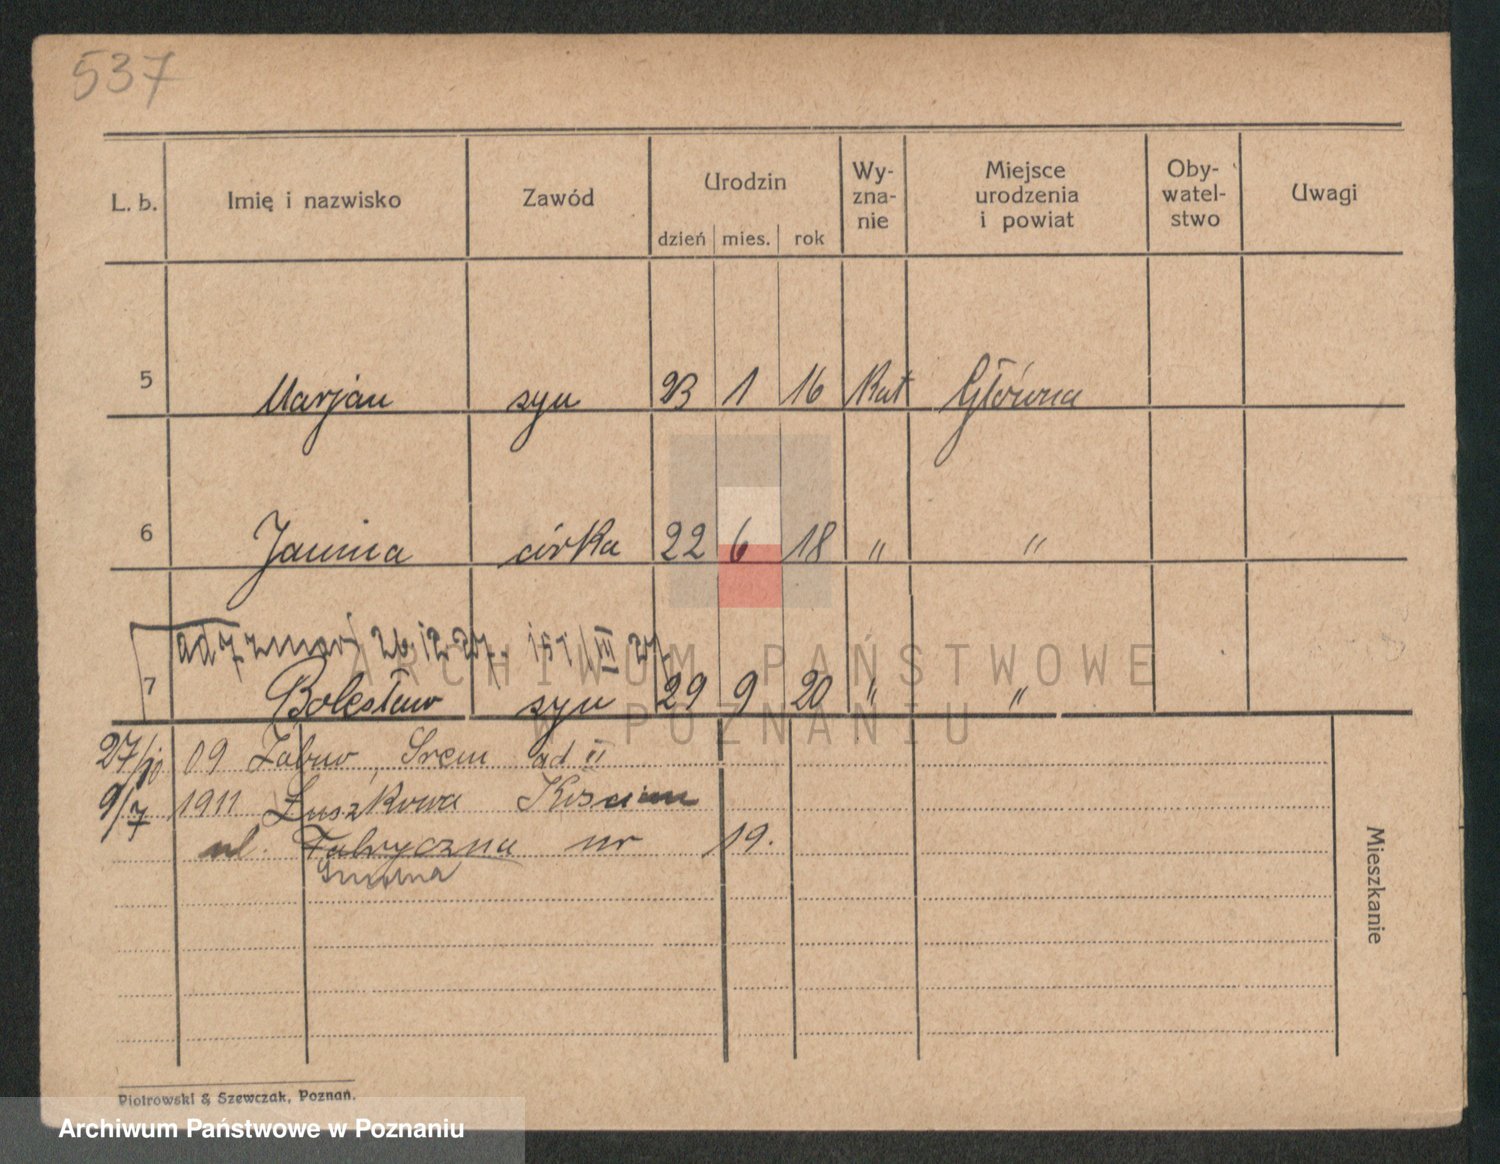 537
L. b. Imię i nazwisko Zawód Urodzin dzień mies. rok Wy-zna-nie Miejsce urodzenia i powiat Oby-watel-stwo Uwagi
5 Marjan syn 23 1 16 Kat Główna
6 Janina córka 22 6 18 " "
ad 7 zmarł 26.12.
7 Bolesław syn 29 9 20 " "
27/10 09 Żabno, Srem ad II
9/7 1911 Łuszkowa Kościan
ul. Fabryczna nr 19.
Mieszkanie
Piotrowski & Szewczak, Poznań.
ARCHIWUM PAŃSTWOWE
W POZNANIU
Archiwum Państwowe w Poznaniu